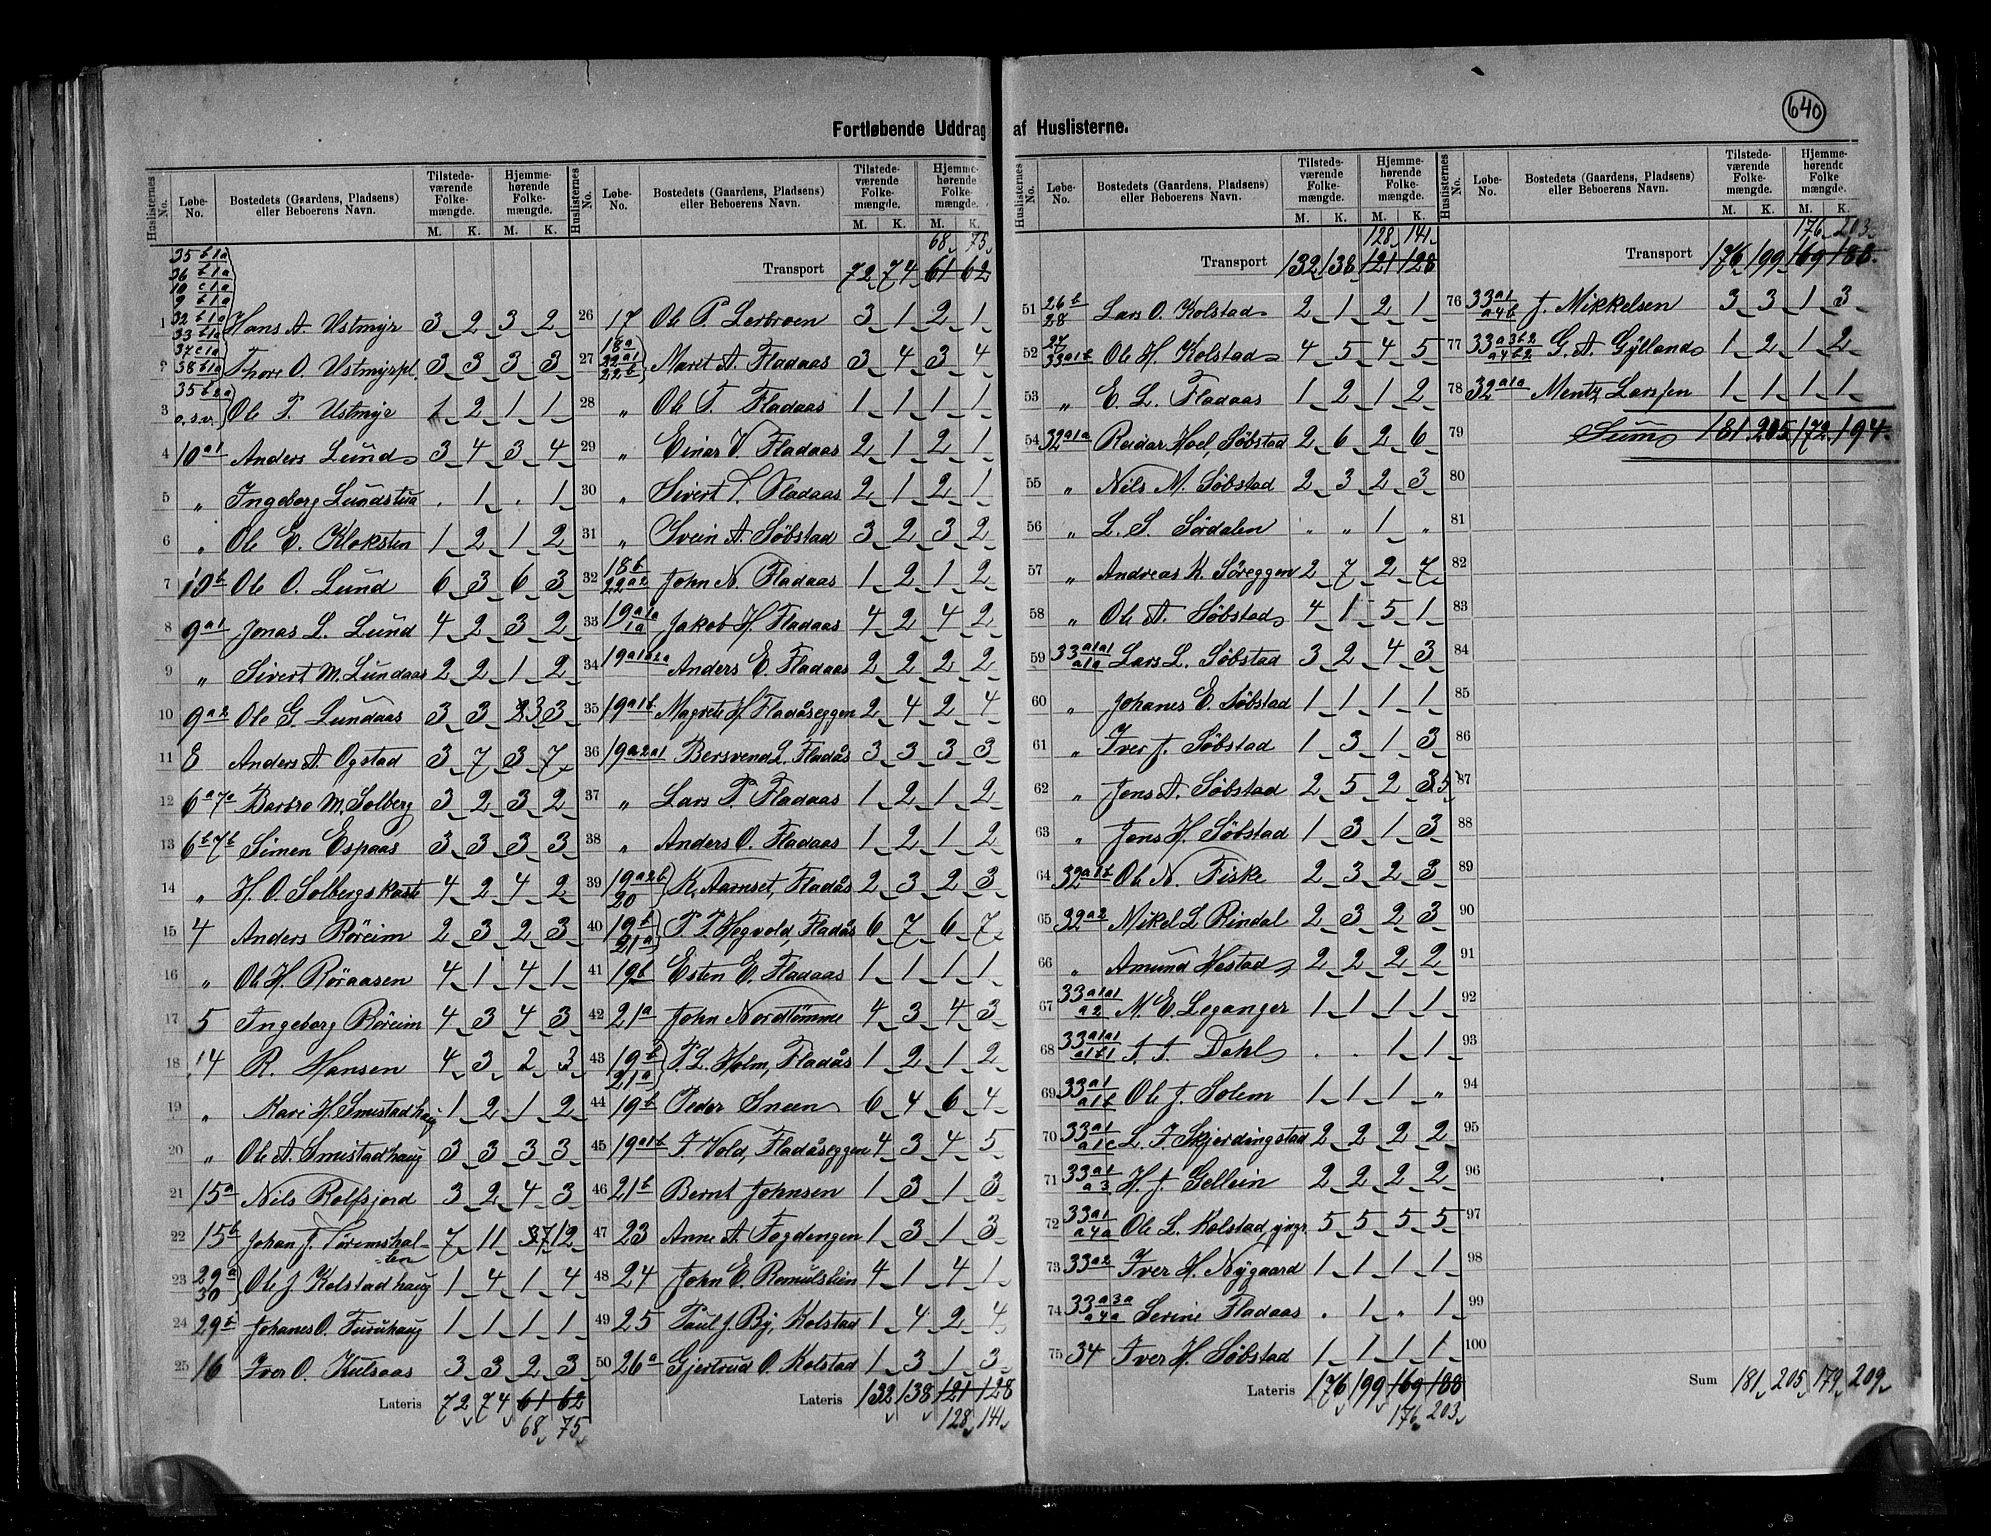 640
Fortløbende Uddrag af Huslisterne.
Huslisternes No. Løbe-No. Bostedets (Gaardens, Pladsens) eller Beboerens Navn. Tilstedeværende Folkemængde. M. K. Hjemmehørende Folkemængde. M. K.
35 b1a
36 b1a
10 c1a
9 b1a
32 b1a
1 33 b1a Hans A Ustmyr 3 2 3 2
37 c1a
2 38 b1a Thore O. Ustmyrpl. 3 3 3 3
35 b2a
3 o.s.v. Ole P. Ustmye 1 2 1 1
4 10 a1 Anders Lund 3 4 3 4
5 " Ingeborg Lundstua . 1 . 1
6 " Ole E. Kloksten 1 2 1 2
7 10 b Ole O. Lund 6 3 6 3
8 9 a1 Jonas L. Lund 4 2 3 2
9 " Sivert M. Lundaas 2 2 1 2
10 9 a2 Ole G. Lundaas 3 3 3 3
11 8 Anders A. Ogstad 3 7 3 7
12 6 a 7 a Barbro M. Solberg 3 2 3 2
13 6 b 7 b Simen Espaas 3 3 3 3
14 " H. O. Solbergskast 4 2 4 2
15 4 Anders Röreim 2 3 2 3
16 " Ole H. Röraasen 4 1 4 1
17 5 Ingeborg Röreim 4 3 4 3
18 14 R. Hansen 4 3 2 3
19 " Kari H. Smistadhaug 1 2 1 2
20 " Ole A. Smistadhaug 3 3 3 3
21 15 a Nils Rolfsjord 3 2 4 3
22 15 b Johan J. Töremshal-
len 7 11 7 12
23 29 a 30 Ole J. Kolstadhaug 1 4 1 4
24 29 b Johanes O. Furuhaug 1 1 1 1
25 16 Iver O. Kulsaas 3 3 2 3
Lateris 72 74 61 62
68 75
Huslisternes No. Løbe-No. Bostedets (Gaardens, Pladsens) eller Beboerens Navn. Tilstedeværende Folkemængde. M. K. Hjemmehørende Folkemængde. M. K.
68 75
Transport 72 74 61 62
26 17 Ole P. Lerbroen 3 1 2 1
27 18 a 22 a1 22 b Marit A. Fladaas 3 4 3 4
28 " Ole T. Fladaas 1 1 1 1
29 " Einar V. Fladaas 2 1 2 1
30 " Sivert T. Fladaas 2 1 2 1
31 " Svein A. Söbstad 3 2 3 2
32 18 b 22 a2 John N. Fladaas 1 2 1 2
33 19 a1a 1a Jakob H. Fladaas 4 2 4 2
34 19 a1a2a Anders E. Fladaas 2 2 2 2
35 19 a1b Magrete H. Fladåseggen 2 4 2 4
36 19 a2a1 Bersvend L. Fladås 3 3 3 3
37 " Lars P. Fladaas 1 2 1 2
38 " Anders O. Fladaas 1 2 1 2
39 19 a2b 20 K. Aarnset, Fladås 2 3 2 3
40 19 b 21 a P. P. Hogvold, Fladås 6 7 6 7
41 19 b Esten E. Fladaas 1 1 1 1
42 21 a John Nordtömme 4 3 4 3
43 19 b 21 a P. L. Holm, Fladås 1 2 1 2
44 19 b Peder Sneen 6 4 6 4
45 19 a1b I Vold, Fladåseggen 4 3 4 5
46 21 b Bernt Johnsen 1 3 1 3
47 23 Anne A. Fogdengen 1 3 1 3
48 24 John E. Romulslien 4 1 4 1
49 25 Paul J. By, Kolstad 1 4 2 4
50 26 a Gjertrud O. Kolstad 1 3 1 3
Lateris 132 138 121 128
128 141
Huslisternes No. Løbe-No. Bostedets (Gaardens, Pladsens) eller Beboerens Navn. Tilstedeværende Folkemængde. M. K. Hjemmehørende Folkemængde. M. K.
128 141
Transport 132 138 121 128
51 26 b 28 Lars O. Kolstad 2 1 2 1
52 27 33 a1b Ole H. Kolstad 4 5 4 5
53 " E. L. Fladaas 1 2 1 2
54 32 a1a Reidar Hoel, Söbstad 2 6 2 6
55 " Nils M. Söbstad 2 3 2 3
56 " L. S. Sördalen " " 1 "
57 " Andreas K. Söreggen 2 7 2 7
58 " Ole A. Söbstad 4 1 5 1
59 33 a1a1 a1a Lars L. Söbstad 3 2 4 3
60 " Johanes E. Söbstad 1 1 1 1
61 " Iver J. Söbstad 1 3 1 3
62 " Jens A. Söbstad 2 5 2 3 5
63 " Jens H. Söbstad 1 3 1 3
64 32 a1b Ole N. Fiske 2 3 2 3
65 32 a2 Mikel L Rindal 2 3 2 3
66 " Amund Hestad 2 2 2 2
67 33 a1a1 a2 M. E. Leganger 1 1 1 1
68 33 a1a1 a1b1 I. I. Dahl . . 1 1
69 33 a1 a1b Ole J. Solem 1 1 1 "
70 33 a1 a1c L. I. Skjerdingstad 2 2 2 2
71 33 a1 a3 H. J. Gellein 2 2 2 2
72 33 a1 a4a Ole L. Kolstad yngr. 5 5 5 5
73 33 a2 Iver H. Nygaard 1 1 1 1
74 33 a3a a4a Serine Fladaas . 1 " 1
75 34 Iver H. Söbstad 1 1 1 1
Lateris 176 199 169 188
176 203
Huslisternes No. Løbe-No. Bostedets (Gaardens, Pladsens) eller Beboerens Navn. Tilstedeværende Folkemængde. M. K. Hjemmehørende Folkemængde. M. K.
176 203
Transport 176 199 169 188
76 33 a1 a4b J. Mikkelsen 3 3 1 3
77 33 a3b2 a4b2 G. A. Gylland 1 2 1 2
78 32 a1a Mentz Larssen 1 1 1 1
79 Sum 181 205 172 194
80
81
82
83
84
85
86
87
88
89
90
91
92
93
94
95
96
97
98
99
100
Sum 181 205 179 209